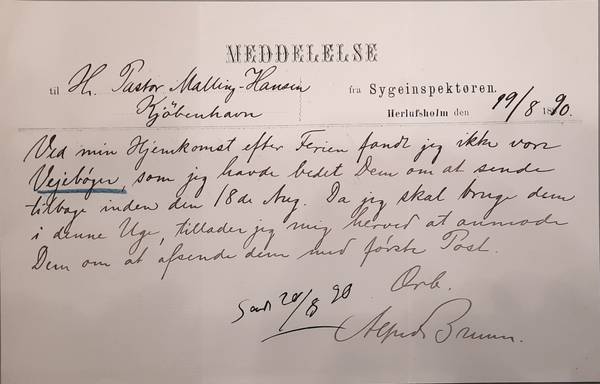 MEDDELELSE
til Hr. Pastor Malling-Hansen fra Sygeinspektøren.
Kjöbenhavn Herlufsholm den 19/8 1890.
Ved min Hjemkomst efter Ferien fandt jeg ikke vore
Vejebøger, som jeg havde bedet Dem om at sende
tilbage inden den 18de Aug. Da jeg skal bruge dem
i denne Uge, tillader jeg mig herved at anmode
Dem om at afsende dem med første Post.
Ærb.
20/8 90
Alfred Bruun.